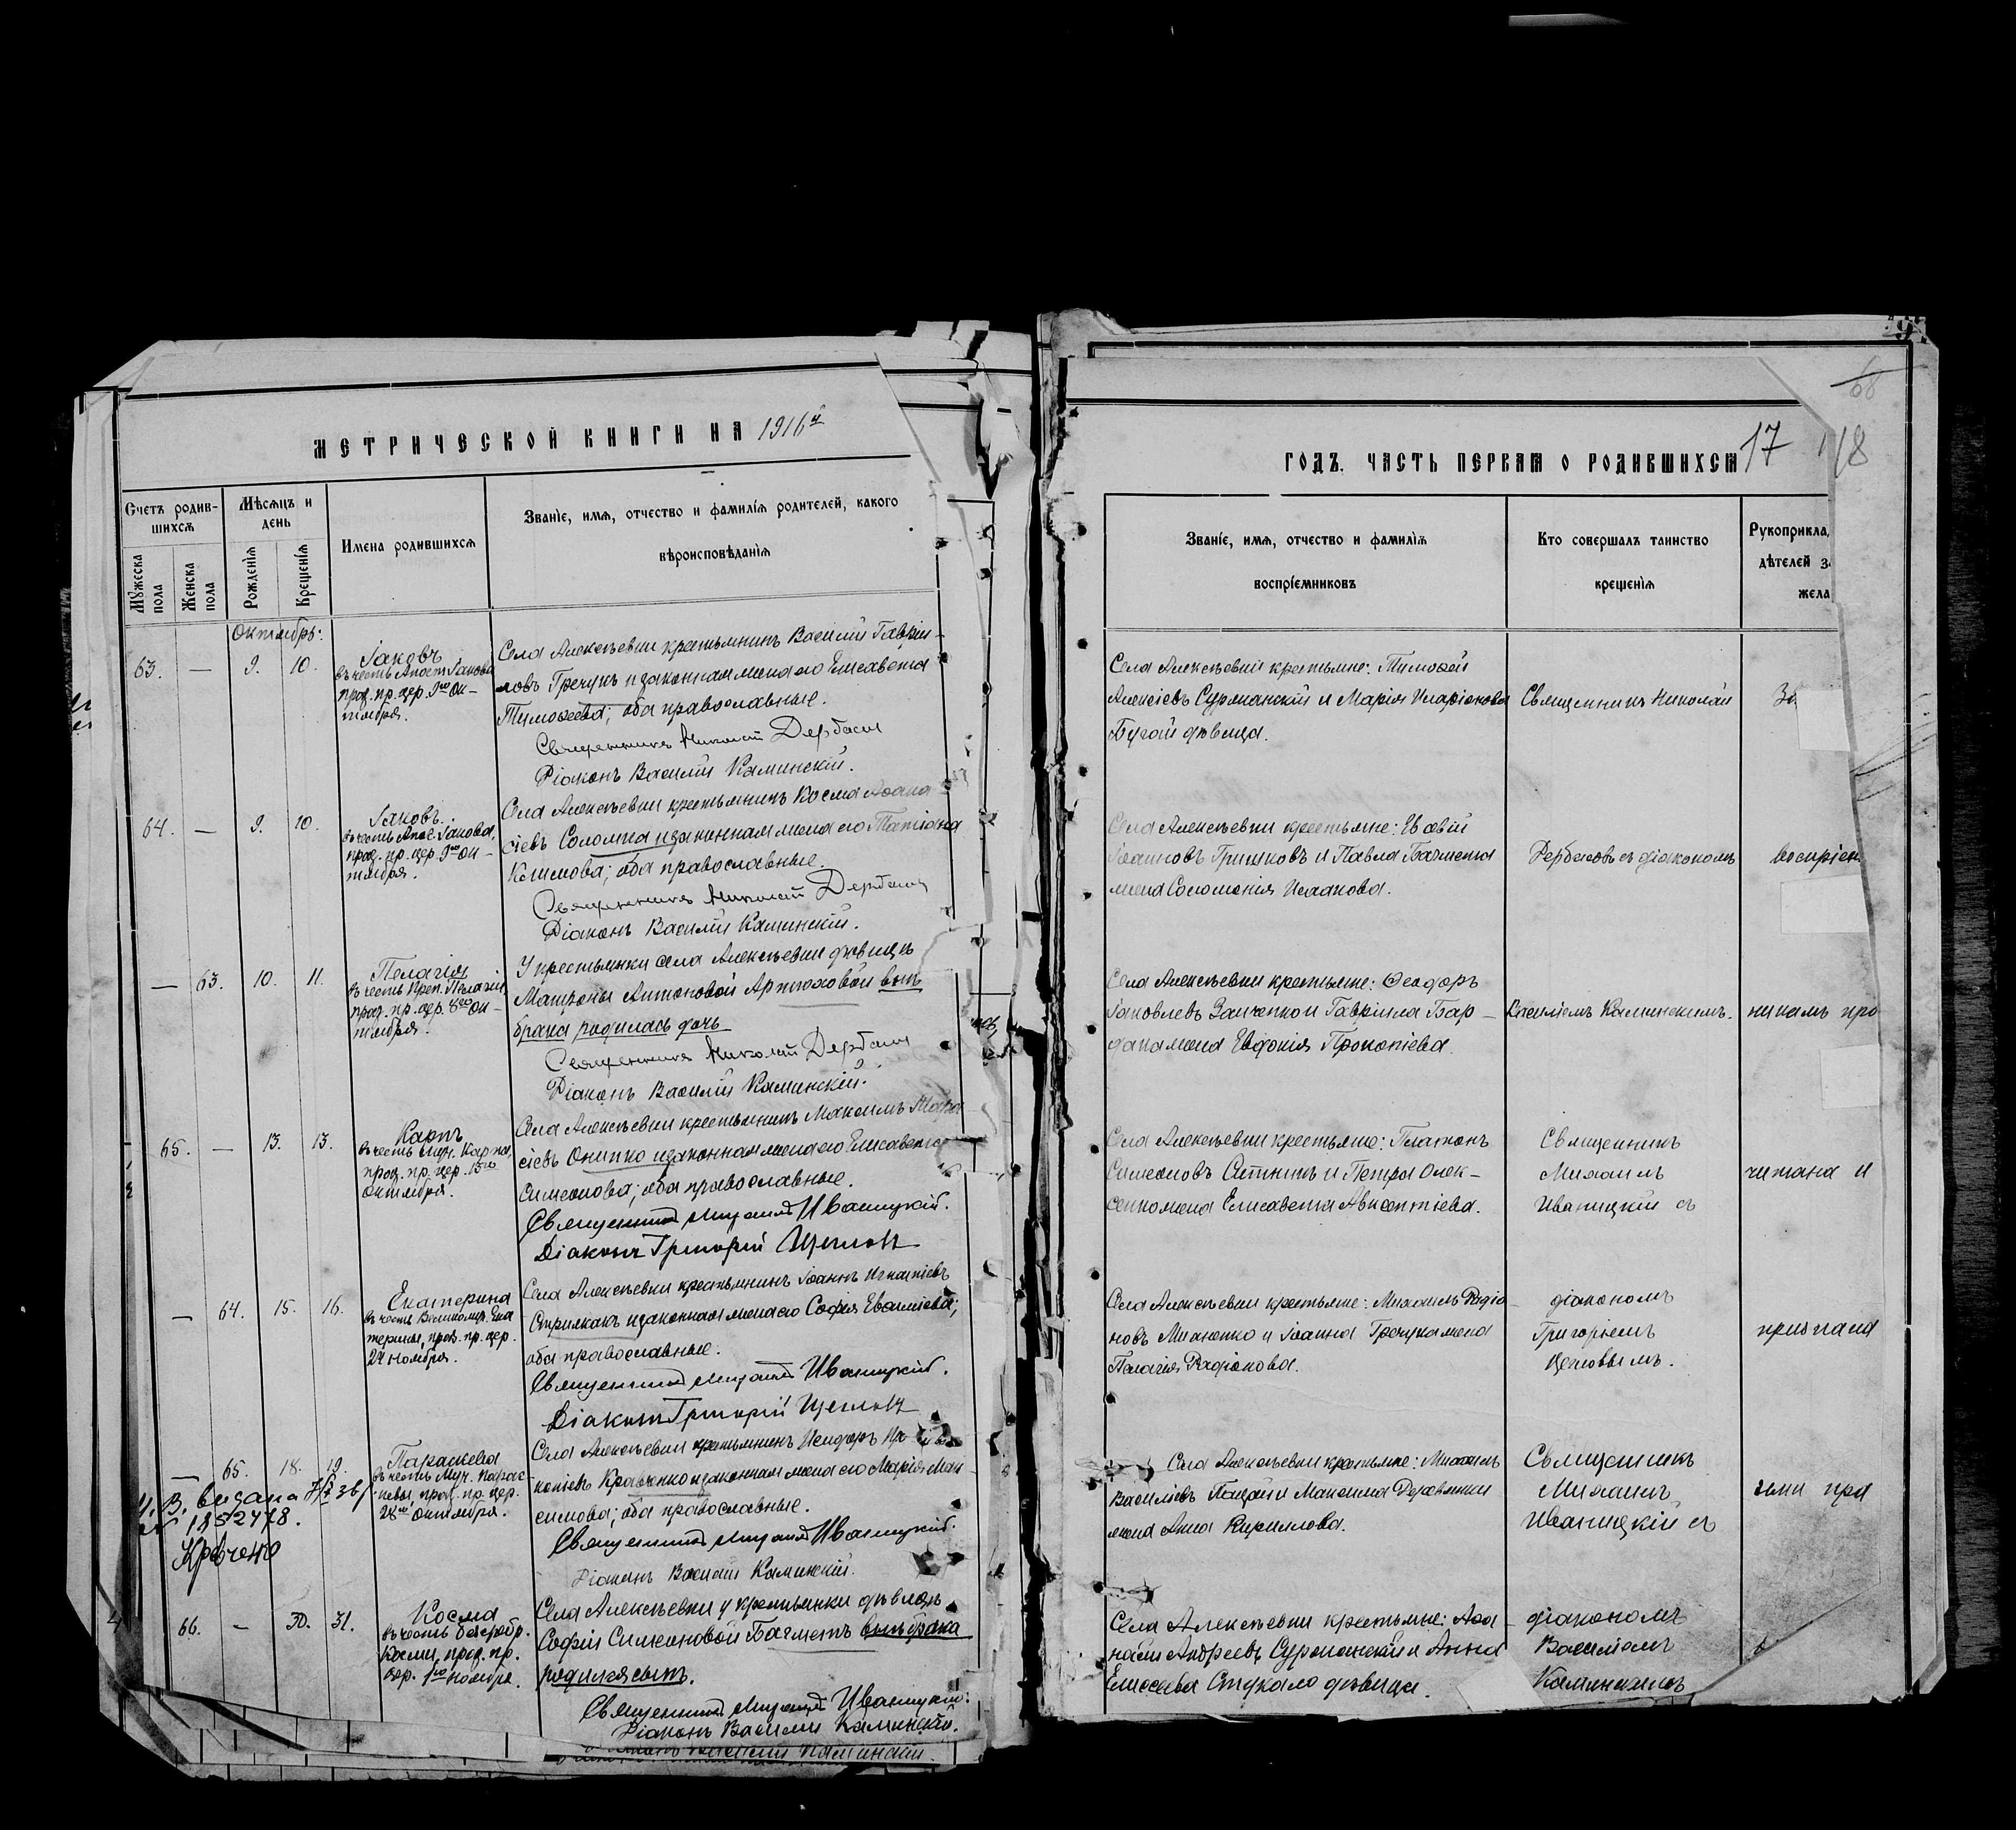 МЕТРИЧЕСКОЙ КНИГИ НА 1916й
Счетъ родив-
шихсѧ
Мѣсѧцъ и
день
Имена родившихсѧ
Званіе, имѧ, отчество и фамиліѧ родителей, какого
вѣроисповѣданіѧ
Мужеска
пола
Женска
пола
Рожденіѧ
Крещеніѧ
Октябрь:
63. — 9. 10.
Іаковъ
въ честь Апост. Іакова
праз. пр. цер. 9го Ок-
тября.
Села Алексѣевки крестьянинъ Василій Гаврiи-
ловъ Гречукъ и законная жена его Елисавета
Тимоѳеева; оба православные.
Священникъ Николай Дербасов
Діаконъ Василій Каминскій.
64. — 9. 10.
Іаковъ
въ честь Апос. Іакова,
праз. пр. цер. 9го Ок-
тября.
Села Алексѣевки крестьянинъ Косма Аѳана
сіевъ Соломка и законная жена его Татіана
оба православные.
Священникъ Николай Дербасов
Діаконъ Василій Каминскій.
— 63. 10. 11.
Пелагія
въ честь Преп. Пелагіи,
праз. пр. цер. 8го Ок-
тября.
У крестьянки села Алексѣевки дѣвицы
Матроны Антоновой Артюховой внѣ
брака родилась дочь
Священникъ Николай Дербасов
Діаконъ Василій Каминскій.
65. — 13. 13.
Карпъ
въ честь Карпа,
праз. пр. цер. 13го
Октября.
Села Алексѣевки крестьянинъ Максимъ Тара
сіевъ Онипко и законная жена его Елисавета
Симеонова; оба православные.
Священникъ Михаилъ Иваницкій.
Діаконъ Григорій Щегловъ
— 64. 15. 16.
Екатерина
въ честь Великомуч. Ека
терины, праз. пр. цер.
24 Ноября.
Села Алексѣевки крестьянинъ Іоаннъ Игнатіевъ
Стрижакъ и законная жена его Софія Евѳиміева;
оба православные.
Священникъ Михаилъ Иваницкій.
Діаконъ Григорій Щегловъ
— 65. 18. 19.
Параскева
въ честь Муч. Парас-
кевы, праз. пр. цер.
28го Октября.
Села Алексѣевки крестьянинъ Исидоръ Про
копіевъ Кравченко и законная жена его Марія Мак
симова; оба православные.
Священникъ Михаилъ Иваницкій.
Діаконъ Василій Каминскій.
видана
№ 1852478.
66. — 30. 31.
Косма
въ честь безсребр.
Космы, праз. пр.
цер. 1го Ноября.
Села Алексѣевки у крестьянки дѣвицы
Софіи Симеоновой Багметъ внѣ брака
родился сынъ.
Священникъ Михаилъ Иваницкій.
Діаконъ Василій Каминскій.
Василій Каминскій.
ГОДЪ. ЧАСТЬ ПЕРВАЯ О РОДИВШИХСЯ 17 18
68
Званіе, имѧ, отчество и фамиліѧ
воспріемниковъ
Кто совершалъ таинство
крещеніѧ
Рукоприкла
дѣтелей з
жела
Села Алексѣевки крестьяне: Тимоѳей
Алексіевъ Сурманскій и Марія Иларіонова
Бугай дѣвица.
Священникъ Николай
За
Села Алексѣевки крестьяне:
Іоанновъ Гришковъ и Павла Багмета
жена Соломонія Исаакова.
Дербасовъ съ діакономъ
воспріем
Села Алексѣевки крестьяне: Ѳеодоръ
Іаковлевъ Заиченко и Гавріила Бар-
дака жена Евдокія Прокопіева.
Василіемъ Каминскимъ.
никамъ про
Села Алексѣевки крестьяне: Платонъ
Симеоновъ Ситникъ и Петра Олек-
сенко жена Елисавета Авксентіева.
Священникъ
Михаилъ
Иваницкій съ
читана и
Села Алексѣевки крестьяне: Михаилъ Радіо-
новъ Миненко и Іоанна Гречука жена
Пелагія Радіонова.
діакономъ
Григоріемъ
Щегловымъ.
признана
Села Алексѣевки крестьяне: Михаилъ
Василіевъ Пацай и Максима Деревянки
жена Анна Кириллова.
Священникъ
Михаилъ
Иваницкій съ
ими пра
Села Алексѣевки крестьяне: Аѳа
насій Андреевъ Сурманскій и Анна
Елисеева Стукало дѣвица.
діакономъ
Василіемъ
Каминскимъ